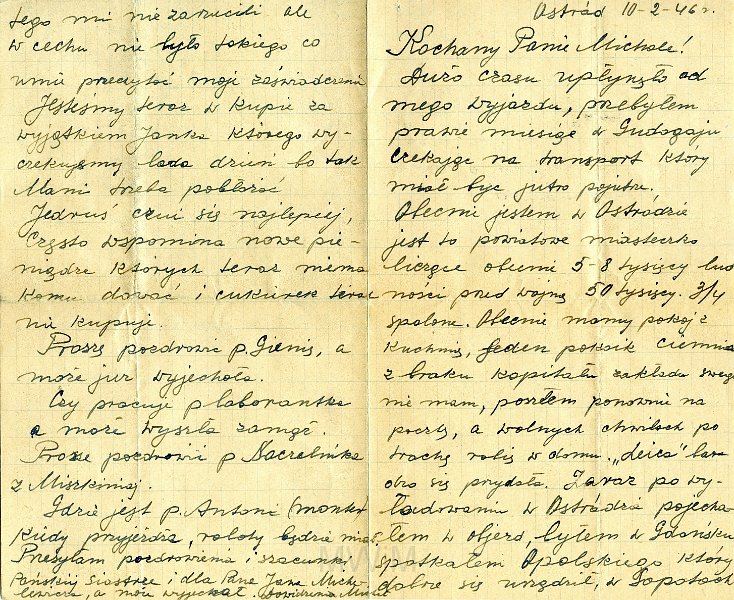 Ostród 10-2-46 r.
Kochany Panie Michale!
Dużo czasu upłynęło od
mego wyjazdu, przebyłem
prawie miesiąc w Gudogaju
czekając na transport który
miał być jutro pojutru.
Obecnie jestem w Ostródzie
jest to powiatowe miasteczko
liczące obecnie 5-8 tysięcy lud
ności przed wojną 50 tysięcy. 3/4
spalone. Obecnie mamy pokój z
kuchnią, jeden pokoik ciemnia
z braku kapitału zakładu swego
nie mam, poszłem ponownie na
pocztę, a wolnych chwilach po
trochę robię w domu. "Leica" bar
dzo się przydała. Zaraz po wy-
ładowaniu w Ostródzie pojecha
łem w objazd, byłem w Gdańsku
spotkałem Opolskiego który
dobrze się urządził, w Sopotach
tego mi nie zarzucili ale
w cechu nie było takiego co
umie przeczytać moje zaświadczenie
Jesteśmy teraz w kupie za
wyjątkiem Janka którego wy-
czekujemy lada dzień bo tak
Mani trzeba pobłożać
Jędruś czui się najlepiej,
często wspomina nowe pie-
niądze których teraz niema
komu dawać i cukierek teraz
nie kupuje.
Proszę pozdrowić p. Gienię, a
może już wyjechała.
Czy pracuje p laborantka
a może wyszła zamąż.
Proszę pozdrowić p Naczelnika
z
Gdzie jest p. Antoni (monter)
Kiedy przyjeżdża, roboty będzie miał
Przesyłam pozdrowienia i szacunki
Pańskiej Siostrze i dla Pana Jana Mich
a może wyjechał. Dowidzenia
MWM